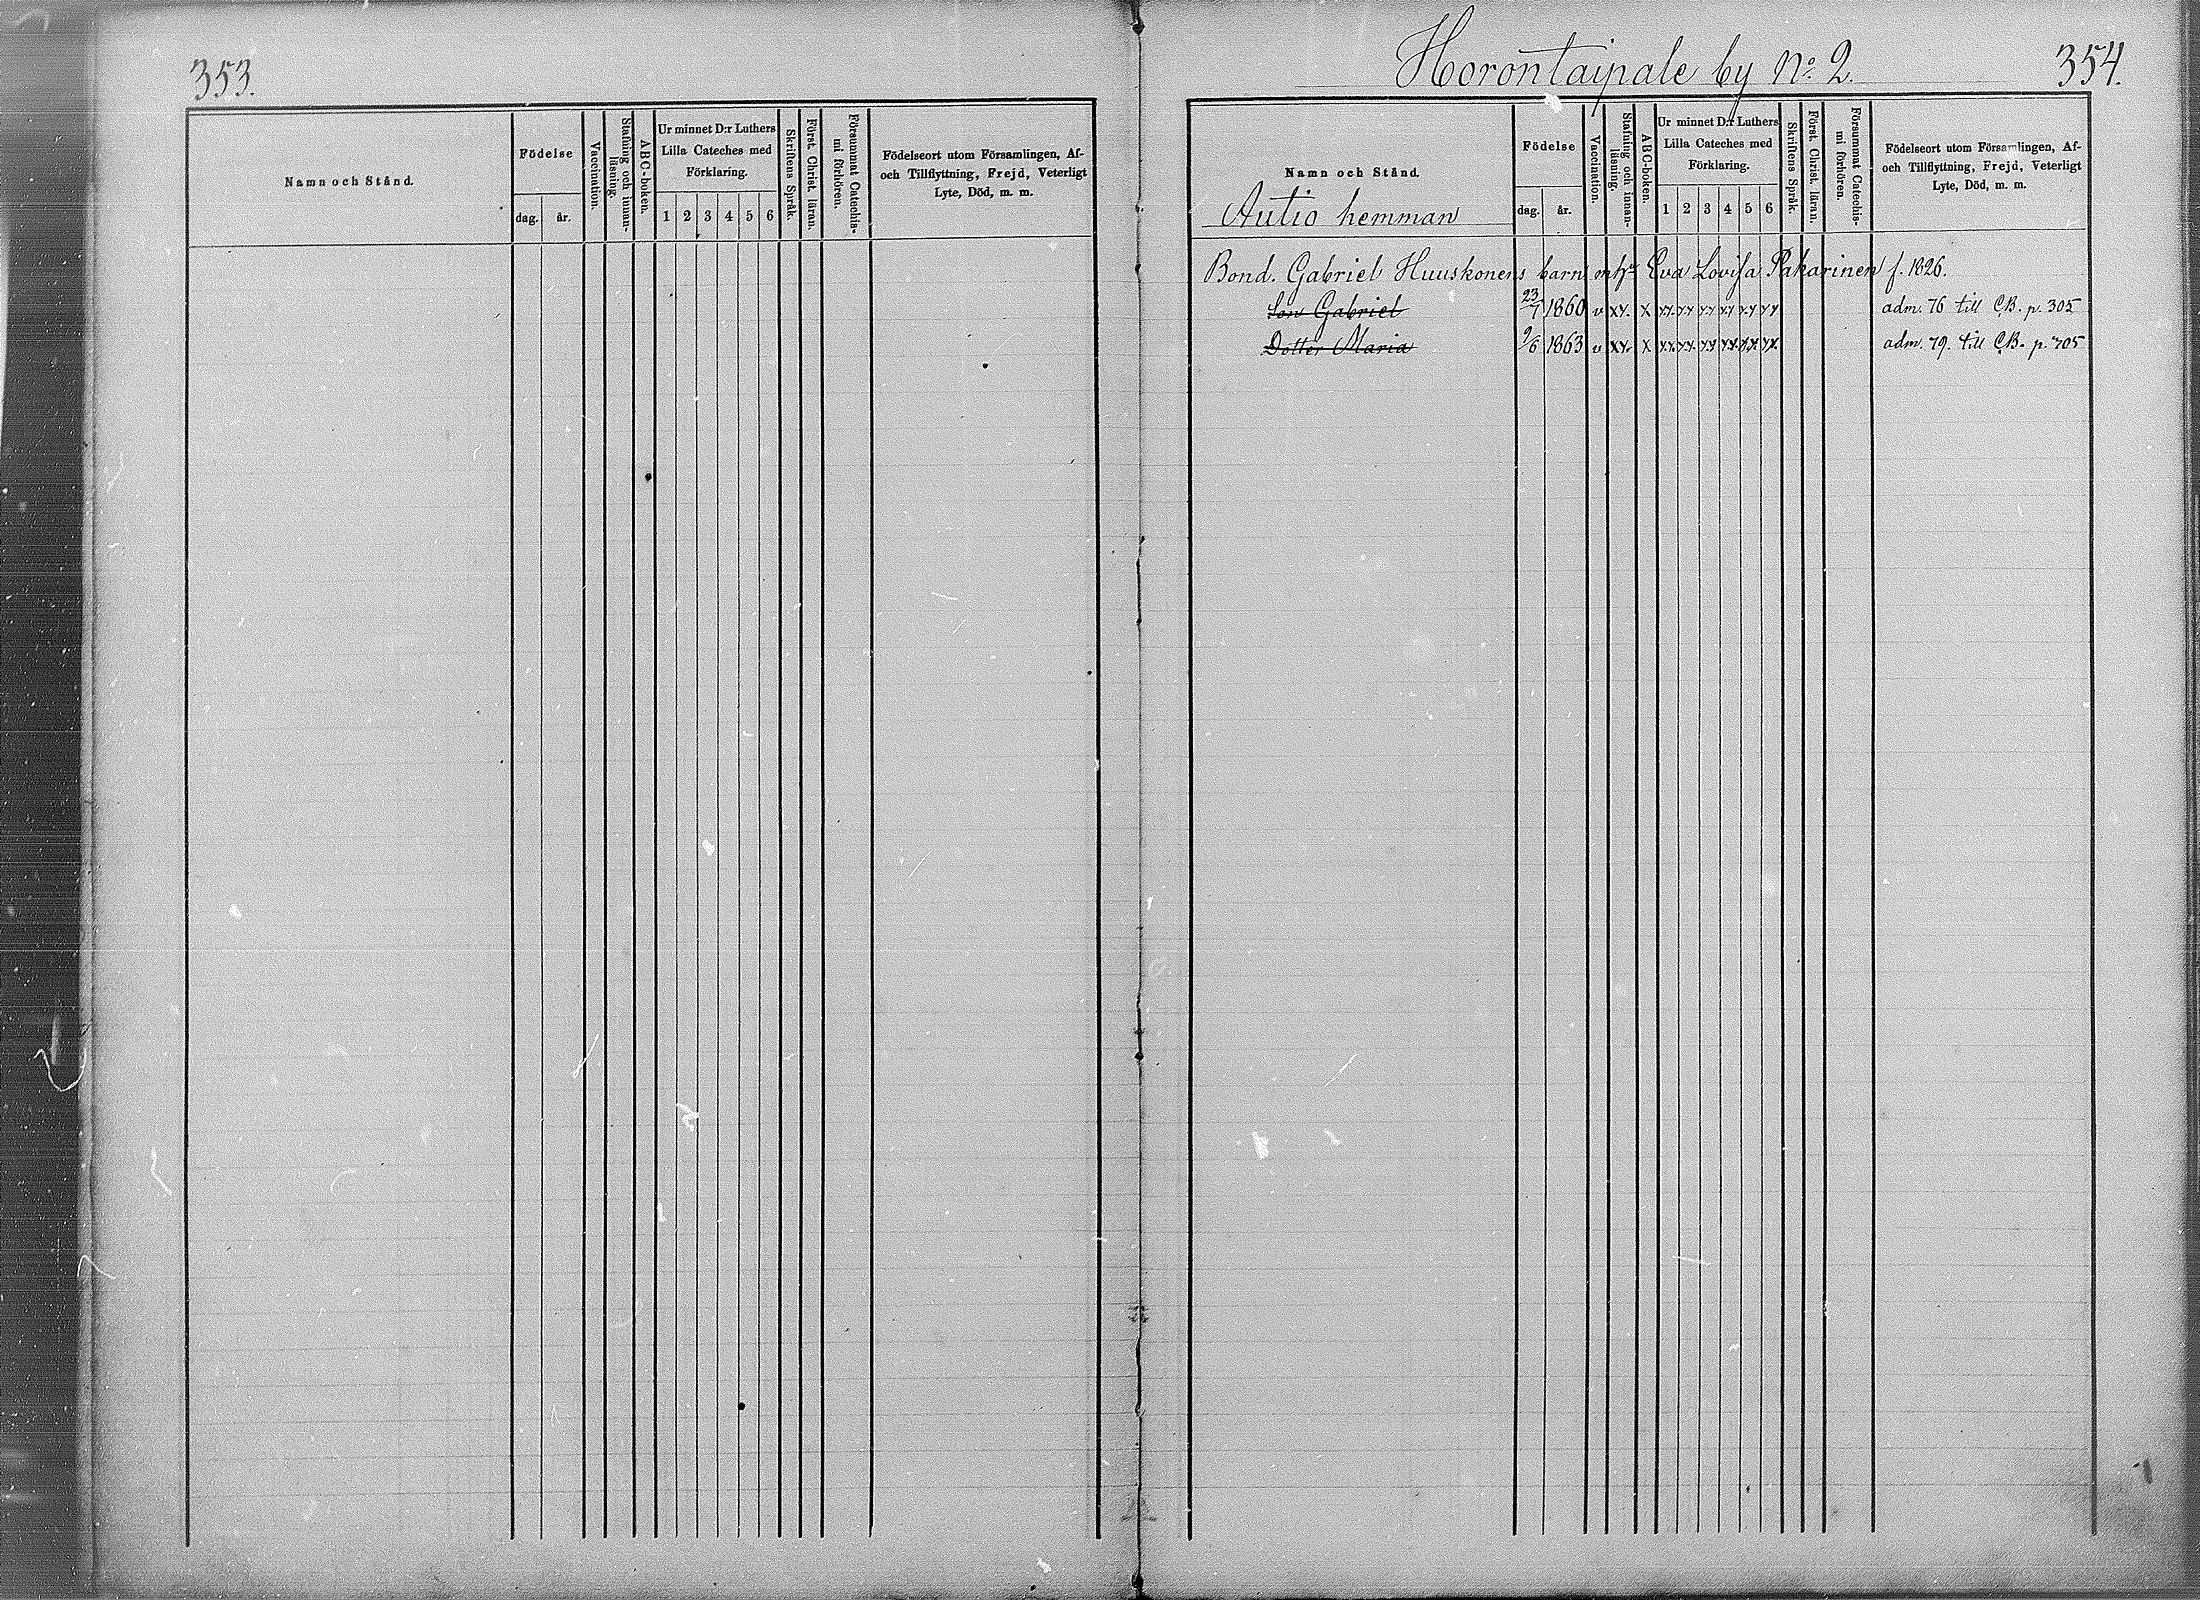 353.
Namn och Stånd.
Födelse
dag.
år.
Vaccination.
Stafning och innan-
läsning.
ABC-boken.
Ur minnet D:r Luthers
Lilla Cateches med
Förklaring.
1 2 3 4 5 6
Skriftens Språk.
Först. Christ. läran.
Försummat Catechis-
mi förhören.
Födelseort utom Församlingen, Af-
och Tillflyttning, Frejd, Veterligt
Lyte, Död, m. m.
Horontaipale by No. 2.
354.
Namn och Stånd.
Autio hemman
Födelse
dag.
år.
Vaccination.
Stafning och innan-
läsning.
ABC-boken.
Ur minnet D:r Luthers
Lilla Cateches med
Förklaring.
1 2 3 4 5 6
Skriftens Språk.
Först. Christ. läran.
Försummat Catechis-
mi förhören.
Födelseort utom Församlingen, Af-
och Tillflyttning, Frejd, Veterligt
Lyte, Död, m. m.
Bond. Gabriel Huuskonens barn Eva Lovisa Pakarinen f. 1826.
Son Gabriel 23/7 1860 v xx. x xx xx xx xx xx xx adm. 76 till C.B. p. 305
Dotter Maria 9/6 1863 v xx x xx xx xx xx xx xx adm. 79. till C.B. p. 705